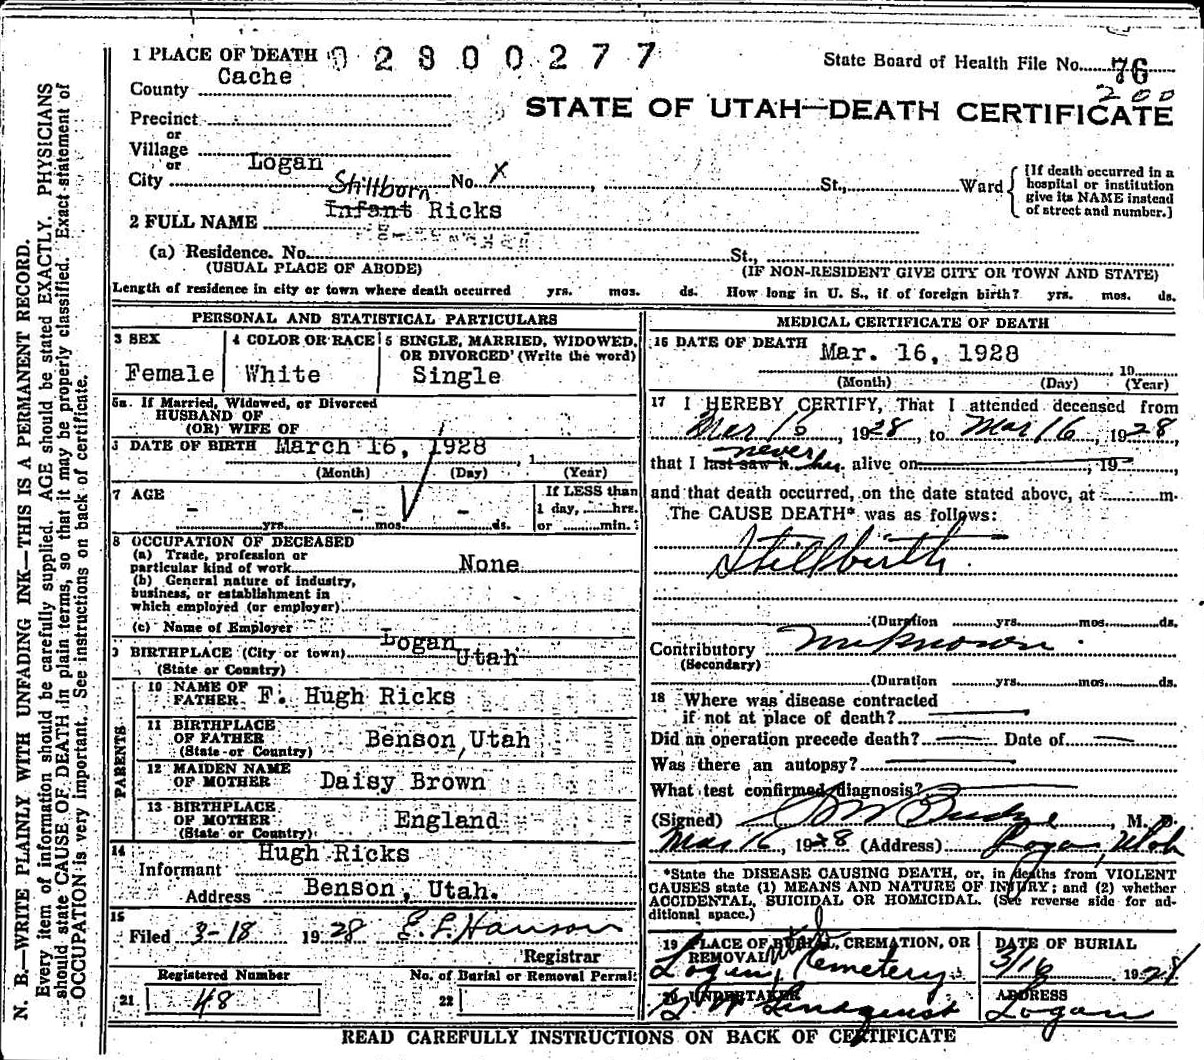 1 PLACE OF DEATH 02800277
State Board of Health File No. 76
200
County Cache
STATE OF UTAH—DEATH CERTIFICATE
Precinct
or
Village
or
City Logan No. X St., Ward
[If death occurred in a
hospital or institution
give its NAME instead
of street and number.]
Stillborn
2 FULL NAME Infant Ricks
(a) Residence. No. St.,
(USUAL PLACE OF ABODE) (IF NON-RESIDENT GIVE CITY OR TOWN AND STATE)
Length of residence in city or town where death occurred yrs. mos. ds. How long in U. S., if of foreign birth? yrs. mos. ds.
PERSONAL AND STATISTICAL PARTICULARS
3 SEX
Female
4 COLOR OR RACE
White
5 SINGLE, MARRIED, WIDOWED,
OR DIVORCED (Write the word)
Single
5a. If Married, Widowed, or Divorced
HUSBAND OF
(OR) WIFE OF
6 DATE OF BIRTH March 16, 1928
, 1
(Month) (Day) (Year)
7 AGE
- - -
yrs. mos. ds.
If LESS than
1 day, hrs.
or min.
8 OCCUPATION OF DECEASED
(a) Trade, profession or
particular kind of work None
(b) General nature of industry,
business, or establishment in
which employed (or employer)
(c) Name of Employer
9 BIRTHPLACE (City or town) Logan
(State or Country) Utah
PARENTS
10 NAME OF
FATHER F. Hugh Ricks
11 BIRTHPLACE
OF FATHER Benson, Utah
(State or Country)
12 MAIDEN NAME
OF MOTHER Daisy Brown
13 BIRTHPLACE
OF MOTHER England
(State or Country)
14
Informant Hugh Ricks
Address Benson, Utah.
15
Filed 3-18 1928 E. L. Hanson
Registrar
Registered Number No. of Burial or Removal Permit
21 48 22
MEDICAL CERTIFICATE OF DEATH
16 DATE OF DEATH Mar. 16, 1928
, 19
(Month) (Day) (Year)
17 I HEREBY CERTIFY, That I attended deceased from
Mar 16, 1928, to Mar 16, 1928,
never
that I last saw h her alive on , 19 ,
and that death occurred, on the date stated above, at m.
The CAUSE DEATH* was as follows:
Stillbirth.
(Duration yrs. mos. ds.
Contributory unknown.
(Secondary)
(Duration yrs. mos. ds.
18 Where was disease contracted
if not at place of death?
Did an operation precede death? Date of
Was there an autopsy?
What test confirmed diagnosis?
(Signed) , M. D.
Mar 16, 1928 (Address) Logan, Utah
*State the DISEASE CAUSING DEATH, or, in deaths from VIOLENT
CAUSES state (1) MEANS AND NATURE OF INJURY; and (2) whether
ACCIDENTAL, SUICIDAL OR HOMICIDAL. (See reverse side for ad-
ditional space.)
19 PLACE OF BURIAL, CREMATION, OR
REMOVAL
Logan, Utah Cemetery
DATE OF BURIAL
3/18 1928
20 UNDERTAKER
Lindquist
ADDRESS
Logan
READ CAREFULLY INSTRUCTIONS ON BACK OF CERTIFICATE
N. B.—WRITE PLAINLY WITH UNFADING INK—THIS IS A PERMANENT RECORD.
Every item of information should be carefully supplied. AGE should be stated EXACTLY. PHYSICIANS
should state CAUSE OF DEATH in plain terms, so that it may be properly classified. Exact statement of
OCCUPATION is very important. See instructions on back of certificate.